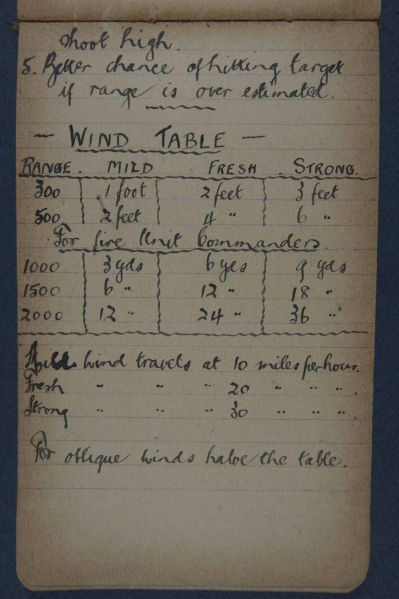 shoot high.
5. Better chance of hitting target
if range is over estimated.
— WIND TABLE —
RANGE. MILD FRESH STRONG.
300 1 foot 2 feet 3 feet
500 2 feet 4 " 6 "
For fire Unit Commanders.
1000 3 yds 6 yds 9 yds
1500 6 " 12 " 18 "
2000 12 " 24 " 36 "
Mild wind travels at 10 miles per hour.
Fresh " " " 20 " " "
Strong " " " 30 " " "
For oblique winds halve the table.